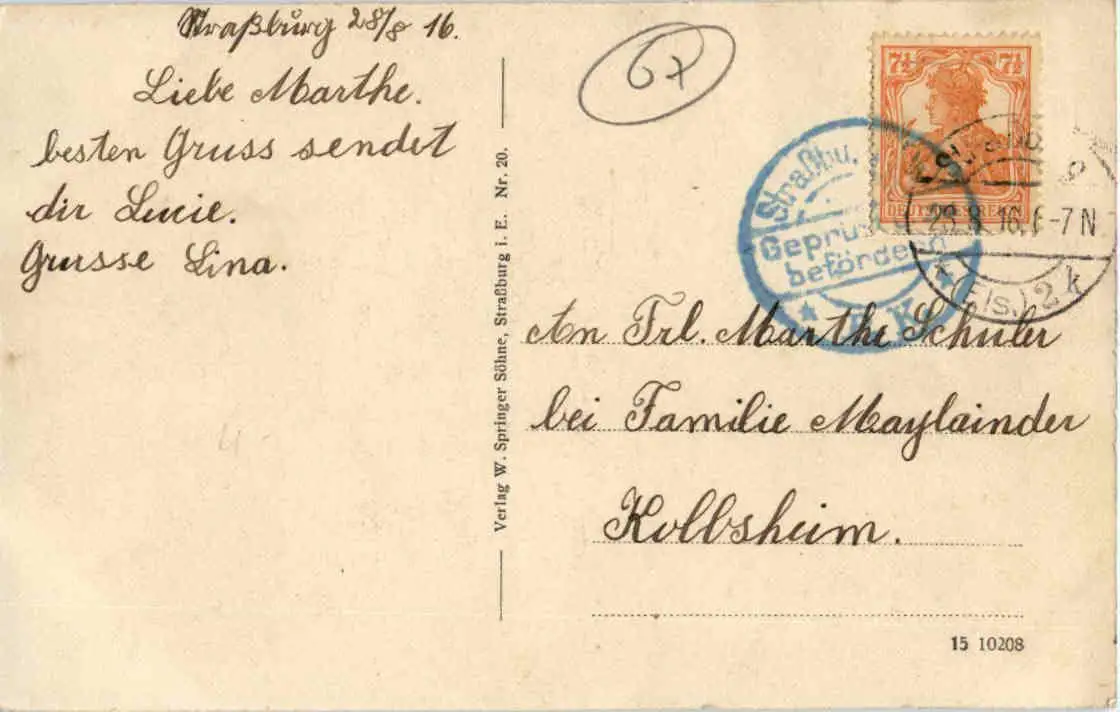 Straßburg 28/8 16.
Liebe Marthe.
besten Gruss sendet
dir Lucie.
Grüsse Lina.
Verlag W. Springer Söhne, Straßburg i. E. Nr. 20.
67
7½ 7½
DEUTSCHES REICH
Straßbu
beförde
F. K.
16. 6-7 N
(Els.) 2 k
An Frl. Marthe Schuler
bei Familie Maylainder
Kolbsheim.
15 10208